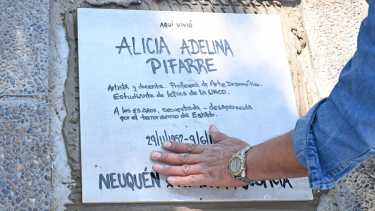 AQUÍ VIVIÓ
ALICIA ADELINA
PIFARRE
Artista y docente. Profesora de Arte Dramático.
Estudiante de letras de la UNCo.
A los 23 años, secuestrada - desaparecida
por el terrorismo de Estado.
29/11/1952-9/6/1
NEUQUÉN